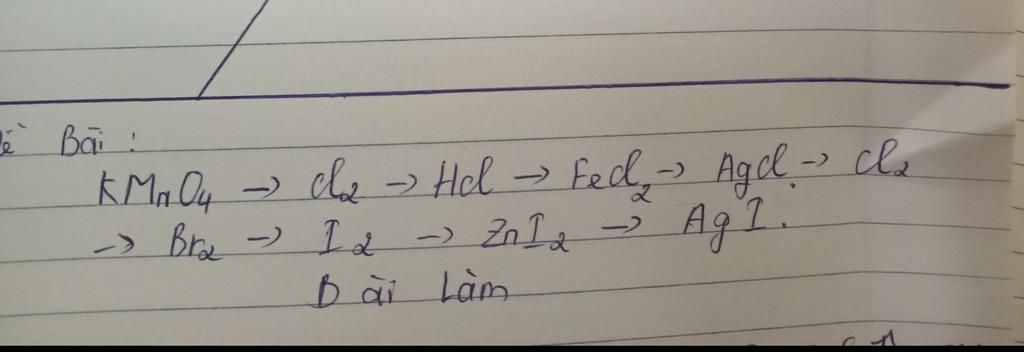 Bài :
KMnO4 → Cl2 → HCl → FeCl2 → AgCl → Cl2
→ Br2 → I2 → ZnI2 → AgI.
Bài Làm